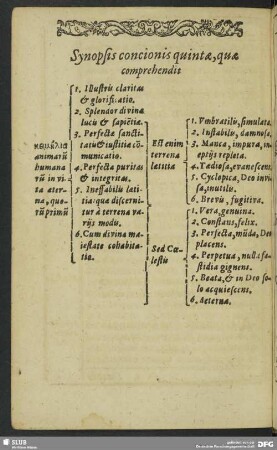 Synopsis concionis quintæ, quæ
comprehendit
κειμήλια
animarũ
humana
rũ in vi
ta æter
na, quo
rũ primũ
1. Illustris claritas
& glorificatio.
2. Splendor divina
lucis & sapiẽtiæ.
3. Perfecta sancti
tatis & iustitiæ cõ
municatio.
4. Perfecta puritas
& integritas.
5. Ineffabilis læti
tia: quæ discerni
tur à terrena va
rijs modis.
6. Cum divina ma
iestate cohabita
tio.
Est enim
terrena
lætitia
1. Vmbratilis, simulata.
2. Instabilis, damnosa.
3. Manca, impura, in
eptijs repleta.
4. Tædiosa, evanescens.
5. Cyclopica, Deo invi
sa, inutilis.
6. Brevis, fugitiva.
Sed Cœ
lestis
1. Vera, genuina.
2. Constans, felix.
3. Perfecta, mũda, Deo
placens.
4. Perpetua, nulla fa
stidia gignens.
5. Beata, & in Deo so
lo acquiescens.
6. Æterna.
SLUB
DFG